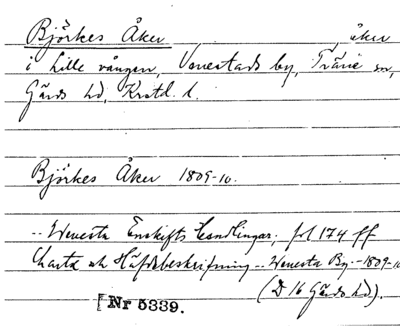 Björkes Åker åker
i Lille vången, Venestads by, Träne sn,
Gärds hd, Krstd. l.
Björkes Åker 1809-10.
.. Wenesta Enskifts Handlingar, fol 174 ff
Charta och Häfdebeskrifning .. Wenesta By. - 1809-10
(D 16 Gärds hd).
[Nr 5339.